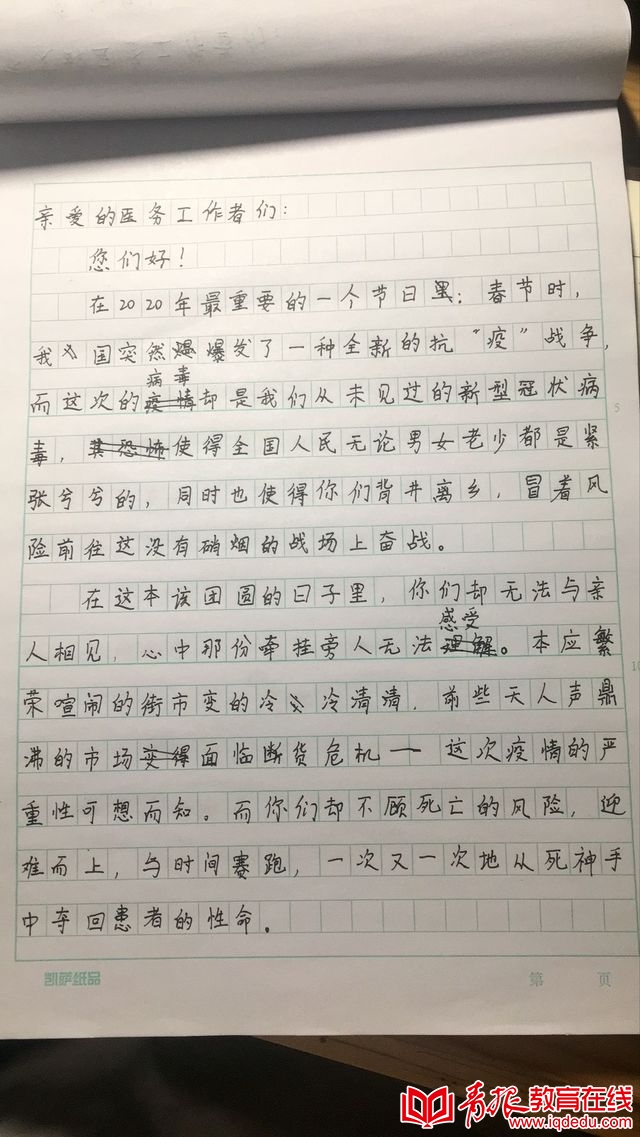 亲爱的医务工作者们：
您们好！
在2020年最重要的一个节日里：春节时，
我国突然爆发了一种全新的抗“疫”战争，
病毒
而这次的疫情却是我们从未见过的新型冠状病
毒，其恐怖使得全国人民无论男女老少都是紧
张兮兮的，同时也使得你们背井离乡，冒着风
险前往这没有硝烟的战场上奋战。
在这本该团圆的日子里，你们却无法与亲
感受
人相见，心中那份牵挂旁人无法理解。本应繁
荣喧闹的街市变的冷冷清清，前些天人声鼎
沸的市场变得面临断货危机——这次疫情的严
重性可想而知。而你们却不顾死亡的风险，迎
难而上，与时间赛跑，一次又一次地从死神手
中夺回患者的性命。
5
10
凯萨纸品
第 页
青报教育在线
www.iqdedu.com